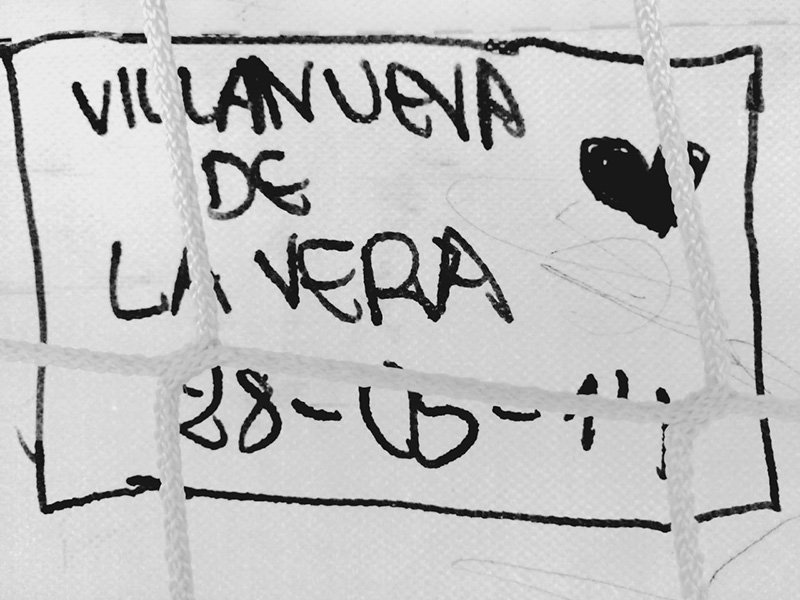 VILLANUEVA
DE
LA VERA
28-05-14